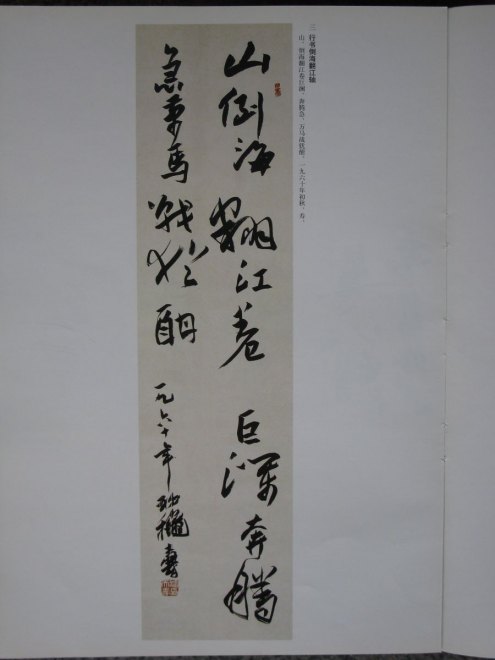 三 行书倒海翻江轴
山，倒海翻江卷巨澜，奔腾急，万马战犹酣。一九六十年初秋，寿。
山倒海翻江卷巨瀾奔騰
急萬馬戰猶酣
一九六十年初龝壽